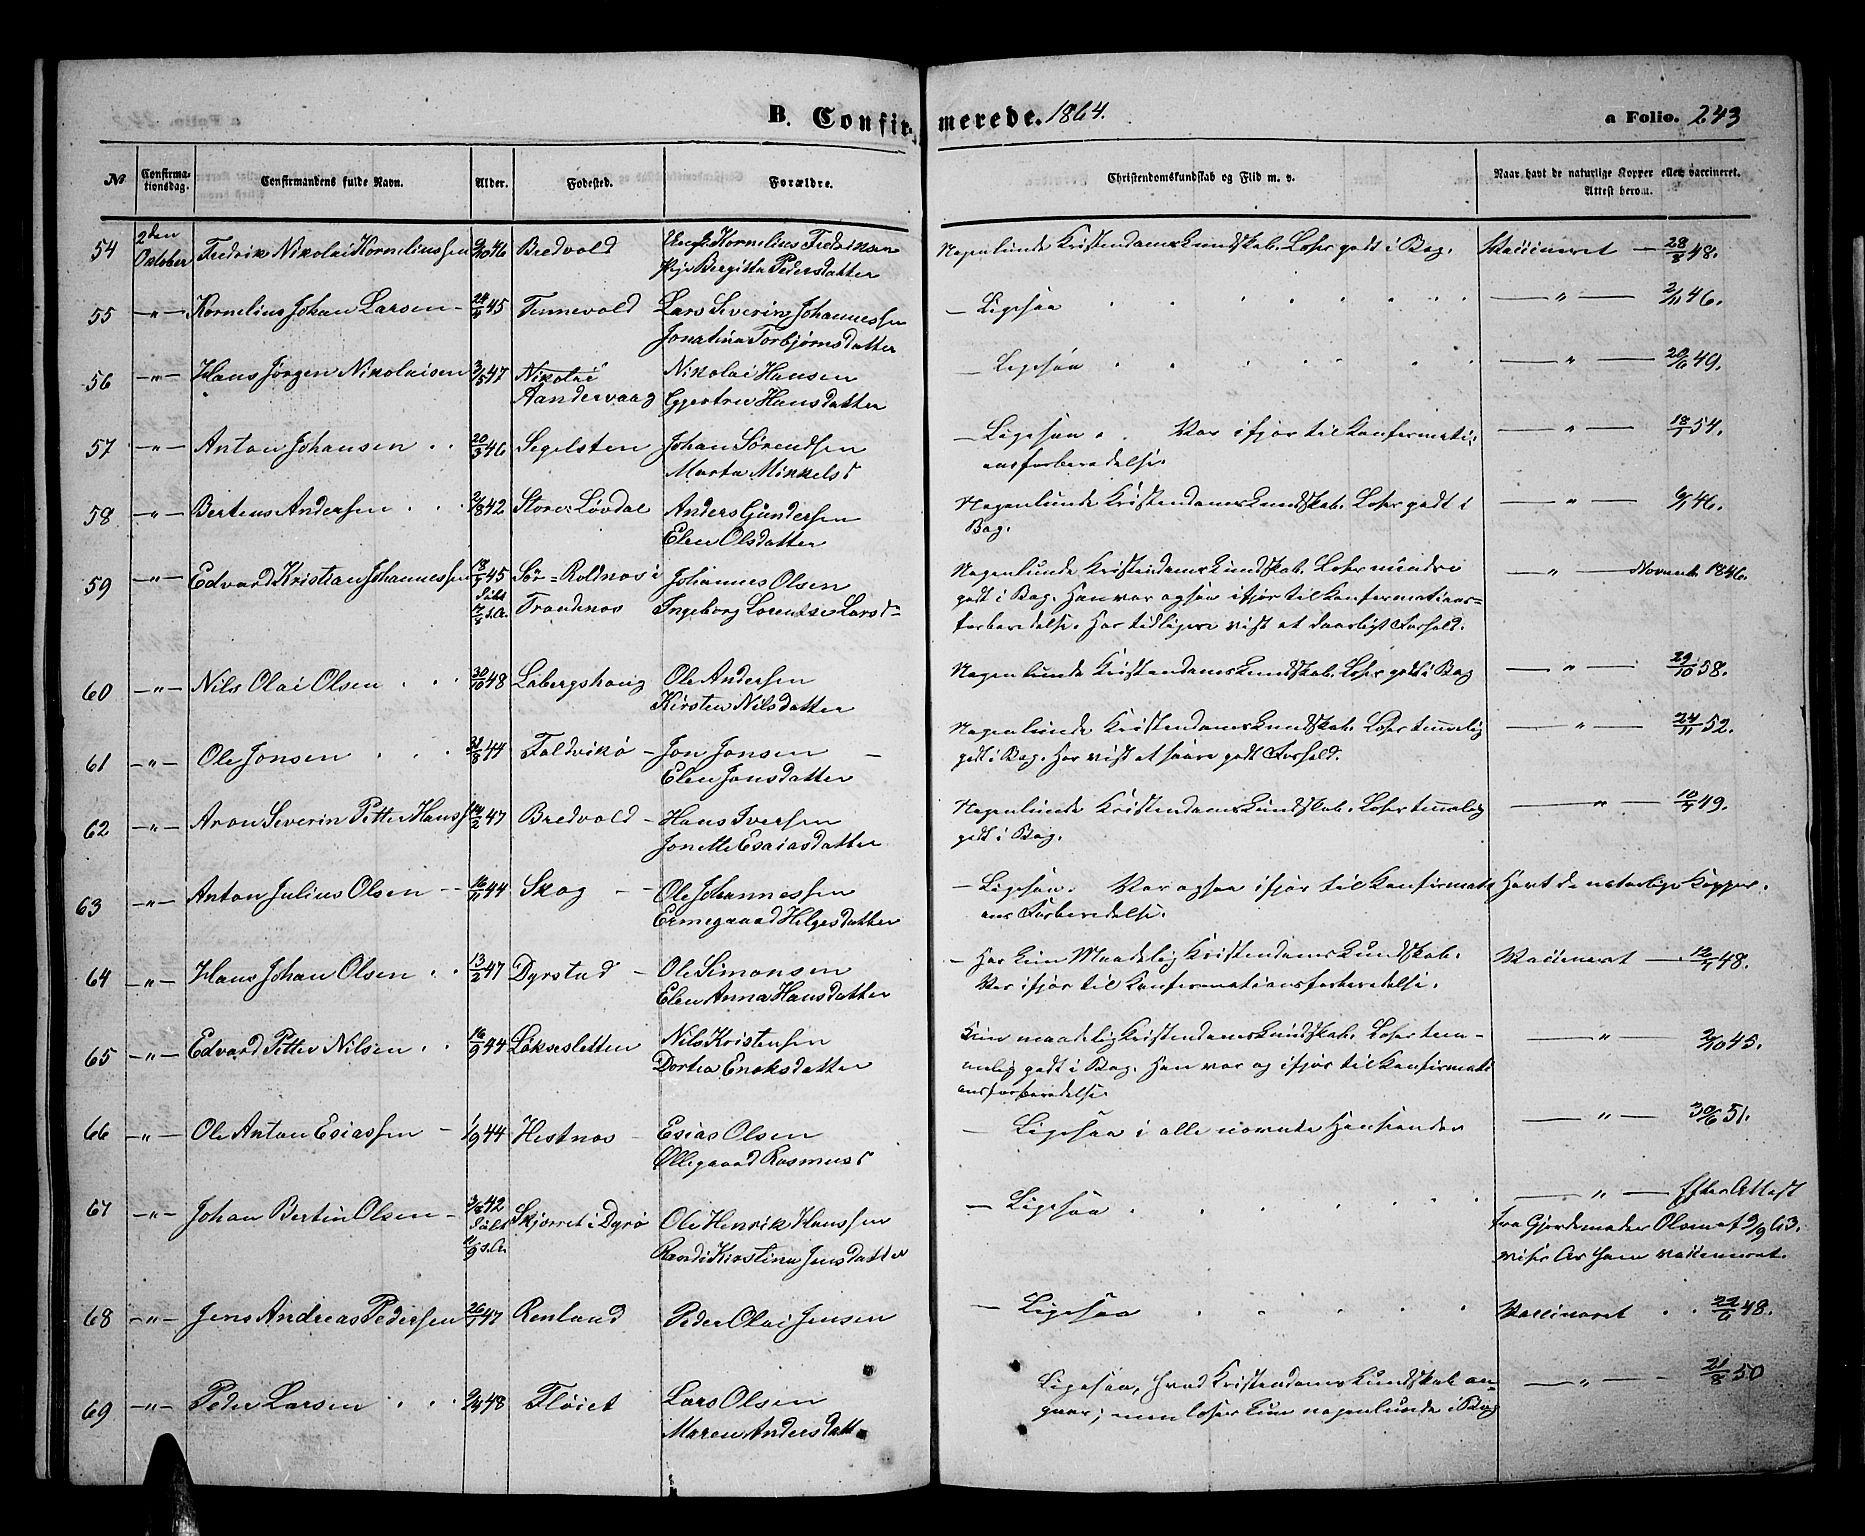 B. Confirmerede. 1864.
a Folio. 243
No
Confirmationsdag.
Confirmandens fulde Navn.
Alder.
Fødested.
Forældre.
Christendomskundskab og Flid m. v.
Naar havt de naturlige Kopper eller vaccineret. Attest herom.
54 2den October Fredrik Nikolai Korneliussen 9/10 46 Bredvold Kornelius Fredriksen
Pige Bergitta Pedersdatter
Nogenlunde Kristendomskundskab. Læser godt i Bog. Vaccineret — 28/8 48.
55 —„— Kornelius Johan Larsen 24/9 45 Tennevold Lars Severin Johannessen
Jonetina Torbjørnsdatter
— Ligesaa —„— 2/11 46.
56 —„— Hans Jørgen Nikolaisen 3/5 47 Aandervaag Nikolai Hansen
Hansdatter
— Ligesaa —„— 20/6 49.
57 —„— Anton Johansen 20/3 46 Segelsten Johan Sørendsen
Marta Mikkelsd
— Ligesaa. Var ifjor til Konfirmati-
onsforberedelse. —„— 18/7 54.
58 —„— Berteus Andersen 2/8 42 Store-Løvdal Anders Gundersen
Elen Olsdatter
Nogenlunde Kristendomskundskab. Læser godt i
Bog. —„— 46.
59 —„— Edvard Kristian Johannessen 18/7 45 Sør-Roldnes i Johannes Olsen
Trondenes Ingeborg Lorentse Larsd-
Nogenlunde Kristendomskundskab. Læser mindre
godt i Bog. Han var ogsaa ifjor til Konfirmations-
forberedelse. Har tidligere vist et daarligt Forhold.
—„— Novemb. 1846.
60 —„— Nils Olai Olsen 30/10 48 Labergshaug Ole Andersen
Kirsten Nilsdatter
Nogenlunde Kristendomskundskab. Læser godt i Bog —„— 29/10 58.
61 —„— Ole Jonsen 31/8 44 Foldvik Jon Jonsen
Elen Jonsdatter
Nogenlunde Kristendomskundskab. Læser temmelig
godt i Bog. Har vist et saare godt Forhold. —„— 24/11 52.
62 —„— Aron Severin Petter Hanss 14/2 47 Bredvold Hans Iversen
Jonette Esaiasdatter
Nogenlunde Kristendomskundskab. Læser temmelig
godt i Bog. —„— 10/9 49.
63 —„— Anton Julius Olsen 16/11 44 Skog Ole Johannessen
Ermegaard Helgesdatter
— Ligesaa. Var ogsaa ifjor til Konfirmati
ons Forberedelse. Havt de naturlige Kopper.
64 —„— Hans Johan Olsen 13/2 47 Dyrstad Ole Simonsen
Elen Anna Hansdatter
— Har kun Maadelig Kristendomskundskab.
Var ifjor til Konfirmationsforberedelse. Vaccineret — 48.
65 —„— Edvard Petter Nilsen 16/9 44 Løksesletten Nils Kristensen
Dortea Enoksdatter
Kun maadelig Kristendomskundskab. Læser tem-
melig godt i Bog. Han var og ifjor til Konfirmati
onsforberedelse. —„— 2/10 45.
66 —„— Ole Anton Esiassen 1/9 44 Hestnes Esias Olsen
Ollegaard Rasmusd
— Ligesaa i alle nævnte Henseender —„— 30/6 51.
67 —„— Johan Bertin Olsen 42 Skjærret i Dyrø Ole Henrik Hanssen
Randi Kirstina Jensdatter
— Ligesaa —„— Efter Attest
fra Gjordemoder Olsen af 2/9 63.
vises at han vaccineret.
68 —„— Jens Andreas Pedersen 26/1 47 Renland Peder Olai Jensen
— Ligesaa Vaccineret 22/6 48.
69 —„— Peder Larsen 48 Fløiet Lars Olsen
Maren Andersdatt.
Ligesaa, hvad Kristendomskundskab an-
gaar; men læser kun nogenlunde i Bog —„— 21/8 50